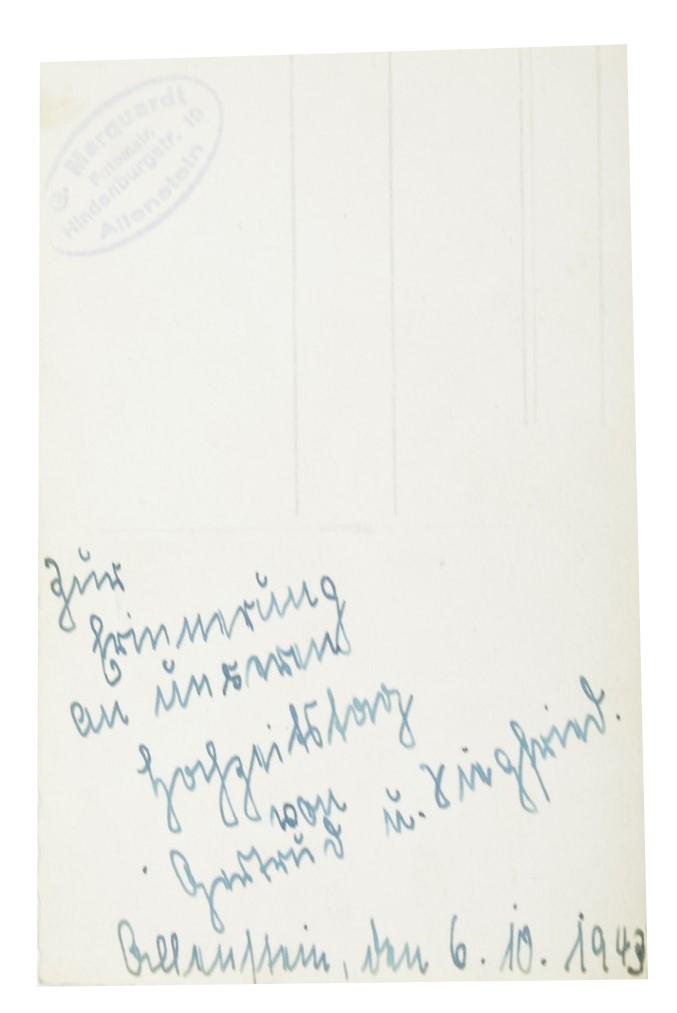 G. Marquardt
Fotomstr.
Hindenburgstr. 19
Allenstein
Zur
Erinnerung
an unseren
Hochzeitstag
von
Gertrud u. Siegfried.
Allenstein, den 6. 10. 1943